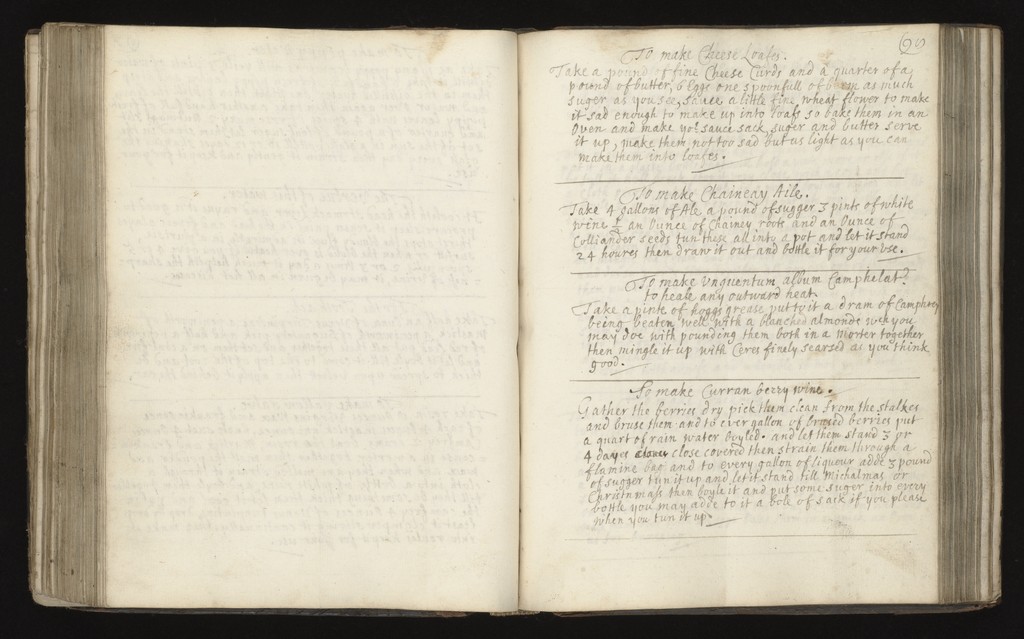 (99)
To make Cheese Loafes.
Take a pound of fine Cheese Curds and a quarter of a
pound of butter, 6 Eggs one spoonfull of barm as much
suger as you see, sauce a little fine wheat flower to make
it sad enough to make up into loafs so bake them in an
Oven and make yor sauce sack, suger and butter serve
it up, make them not too sad but as light as you can
make them into loafes.
To make Chaineay Aile.
Take 4 gallons of Ale a pound of sugger 3 pints of white
wine ½ an Ounce of Chainey roots and an Ounce of
Colliander seeds tun these all into a pot and let it stand
24 houres then draw it out and bottle it for your Use.
To make Unguentum album Camphelat?
to heale any outward heat
Take a pinte of hoggs grease put to it a dram of Camphrey
being beaten well with a blanched almonde wch you
may doe with pounding them both in a morter together
then mingle it up with Ceres finely searsed as you think
good.
To make Curran berry wine.
Gather the berries dry pick them clean from the stalkes
and bruse them and to ever gallon of brused berries put
a quart of rain water boyled. and let them stand 3 or
4 dayes close covered then strain them through a
flamine bag and to every gallon of liquour adde 3 pound
of sugger tun it up and let it stand till Michalmas or
Christnmass then boyle it and put some suger into every
bottle you may adde to it a bole of sack if you please
when you tun it up.